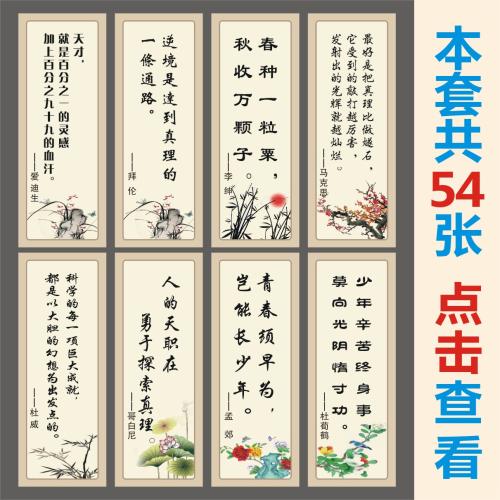 天才，
就是百分之一的灵感
加上百分之九十九的血汗。
——爱迪生
逆境是達到真理的
一條通路。
——拜伦
春种一粒粟，
秋收万颗子。
——李绅
最好是把真理比做燧石，
它受到的敲打越厉害，
发射出的光辉就越灿烂。
——马克思
科学的每一項巨大成就，
都是以大胆的幻想为出发点的。
——杜威
人的天职在
勇于探索真理。
——哥白尼
青春须早为，
岂能长少年。
——孟郊
少年辛苦终身事，
莫向光阴惰寸功。
——杜荀鹤
本套共54张 点击查看